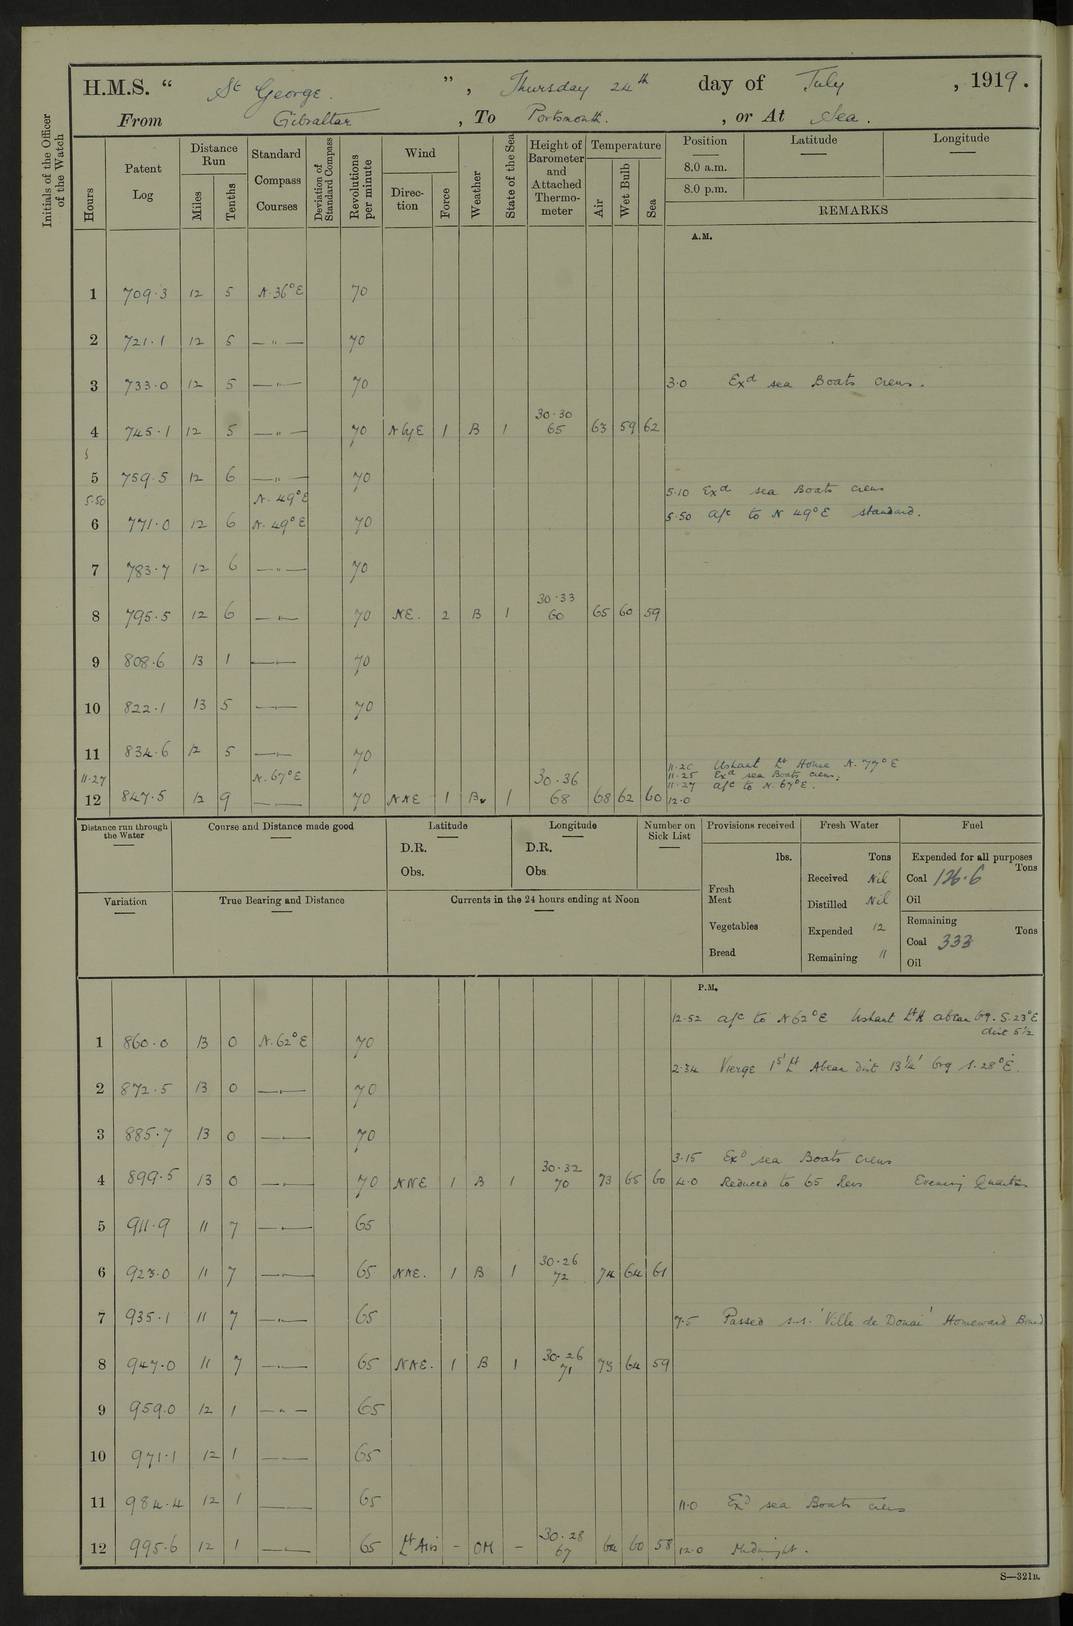 H.M.S. “ St George. ”, Thursday 24th day of July, 1919.
From Gibraltar, To Portsmouth., or At Sea.
Initials of the Officer of the Watch
Hours
Patent Log
Distance Run
Miles
Tenths
Standard Compass Courses
Deviation of Standard Compass
Revolutions per minute
Wind
Direction
Force
Weather
State of the Sea
Height of Barometer and Attached Thermometer
Temperature
Air
Wet Bulb
Sea
Position
Latitude
Longitude
8.0 a.m.
8.0 p.m.
REMARKS
A.M.
1 709·3 12 5 N.36°E 70
2 721·1 12 5 —"— 70
3 733·0 12 5 —"— 70 3·0 Exd sea Boats crews.
30·30
4 745·1 12 5 —"— 70 NbyE 1 B 1 65 63 59 62
5 759.5 12 6 —"— 70
5·50 N. 49°E 5·10 Exd sea Boats crews
6 771·0 12 6 N. 49°E 70 5·50 a/c to N 49°E standard.
7 783·7 12 6 —"— 70
30·33
8 795·5 12 6 —"— 70 NE. 2 B 1 60 65 60 59
9 808·6 13 1 —"— 70
10 822·1 13 5 —"— 70
11 834·6 12 5 —"— 70
11·20 Ushant Lt House N. 77°E
11·27 N. 67°E 30·36 11·25 Exd sea Boats crews.
11·27 a/c to N. 67°E.
12 847·5 12 9 —"— 70 NNE 1 Bv 1 68 68 62 60 12·0
Distance run through the Water
Course and Distance made good
Latitude
D.R.
Obs.
Longitude
D.R.
Obs
Number on Sick List
Provisions received
lbs.
Fresh Meat
Vegetables
Bread
Fresh Water
Tons
Received Nil
Distilled Nil
Expended 12
Remaining 11
Fuel
Expended for all purposes
Tons
Coal 126·6
Oil
Remaining
Tons
Coal 333
Oil
Variation
True Bearing and Distance
Currents in the 24 hours ending at Noon
P.M.
12·52 a/c to N62°E Ushant Lt H abeam brg. S.23°E
dist 5½
1 860·0 13 0 N.62°E 70
2·34 Vierge Lt Abeam dist 13¼' brg S.28°E.
2 872·5 13 0 —"— 70
3 885·7 13 0 —"— 70
3·15 Exd sea Boats crews
30·32
4 899·5 13 0 —"— 70 NNE 1 B 1 70 73 65 60 4·0 Reduced to 65 Revs Evening Quarters
5 911·9 11 7 —"— 65
30·26
6 923·0 11 7 —"— 65 NNE. 1 B 1 72 74 64 61
7 935·1 11 7 —"— 65 7·5 Passed s.s. 'Ville de Douai' Homeward Bound
30·26
8 947·0 11 7 —"— 65 NNE. 1 B 1 71 73 64 59
9 959.0 12 1 —"— 65
10 971·1 12 1 —"— 65
11 984·4 12 1 —"— 65 11·0 Exd sea Boats crews
30·28
12 995·6 12 1 —"— 65 Lt Airs - OM - 67 64 60 58 12·0 Midnight.
S—321B.